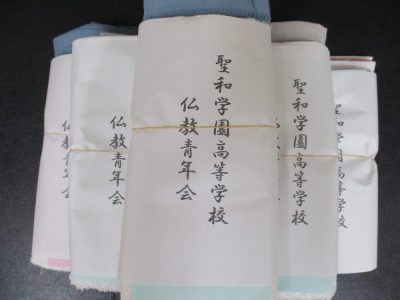 聖和学園高等学校
仏教青年会
聖和学園高等学校
聖和学園高等学校
仏教青年会
仏教青年会